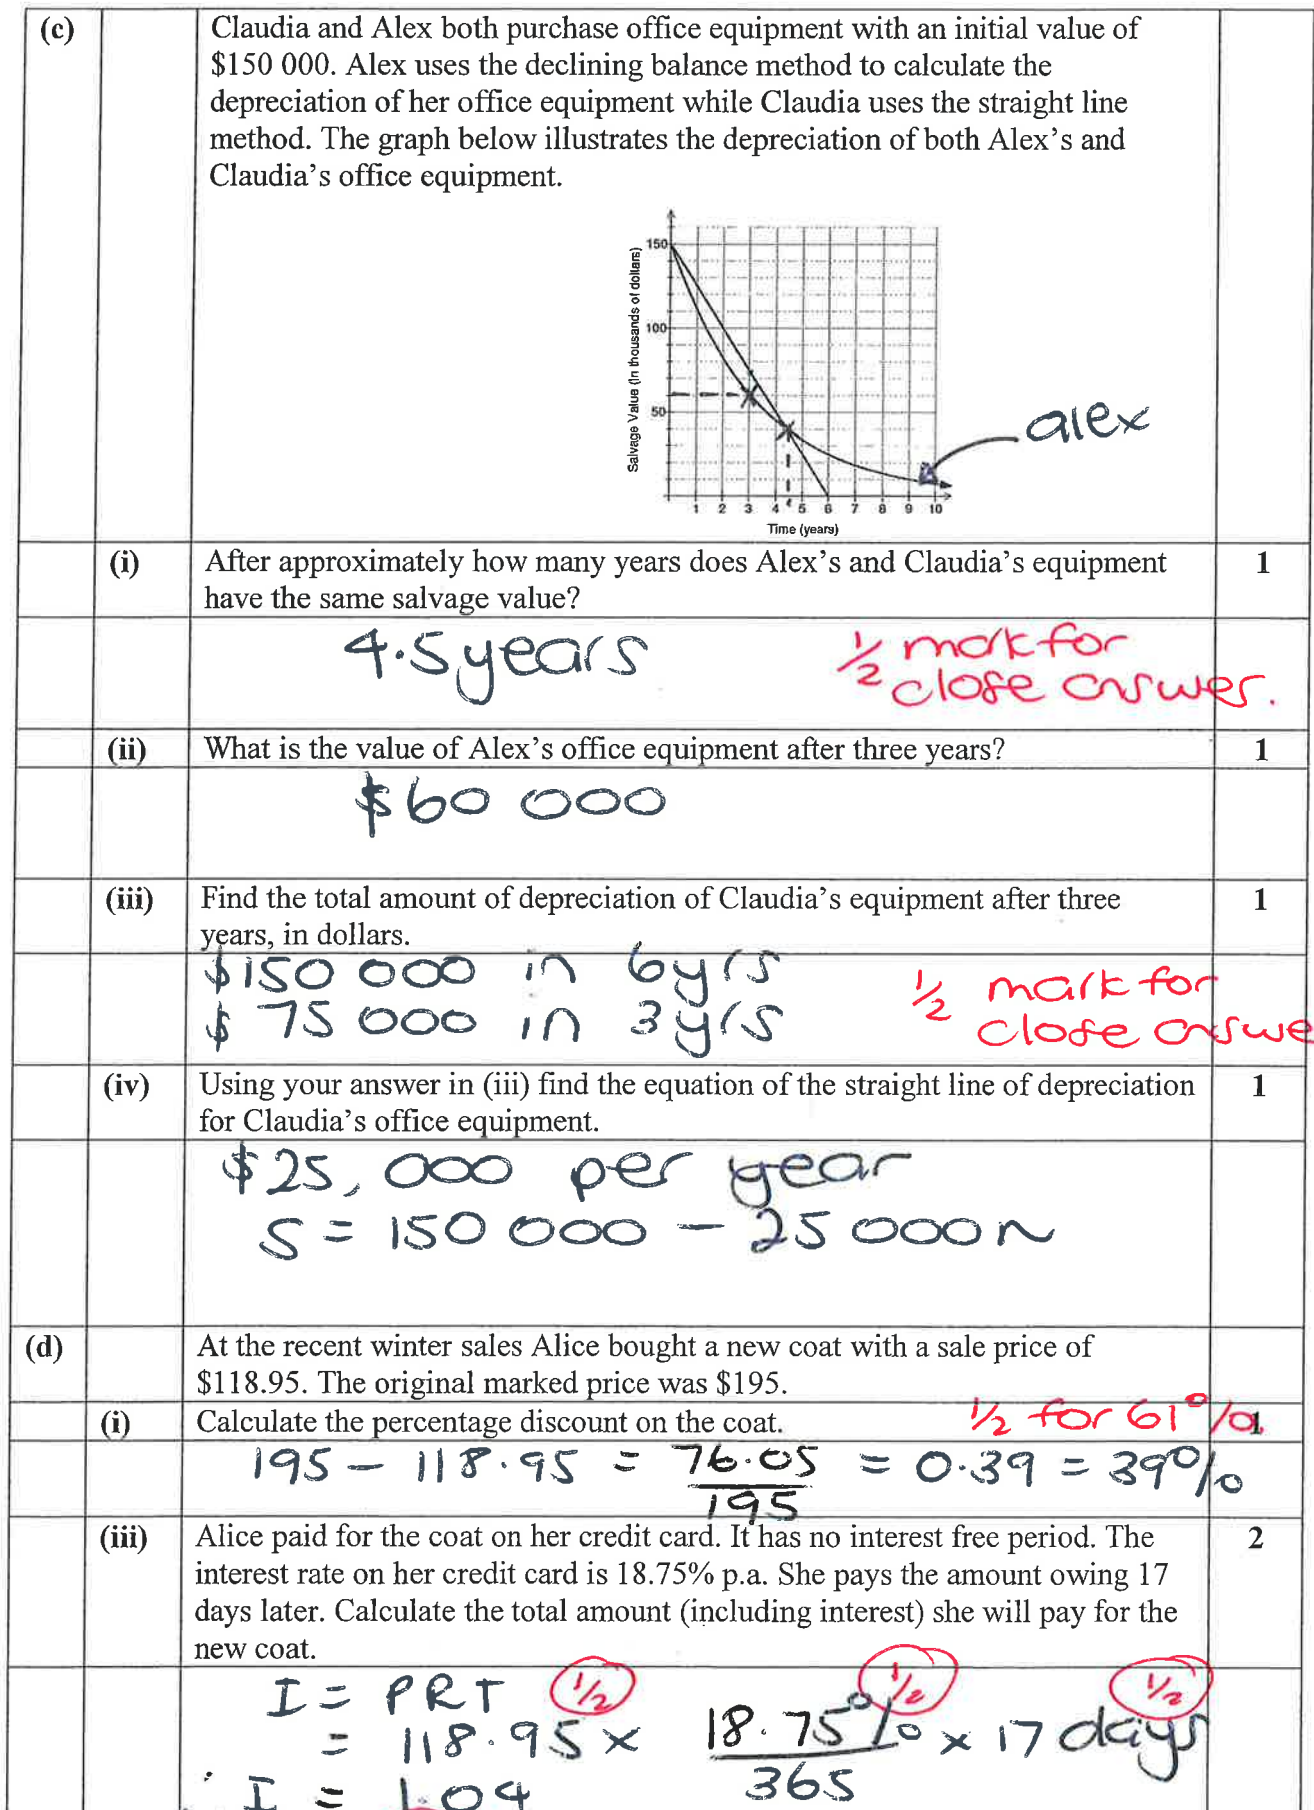 (c) Claudia and Alex both purchase office equipment with an initial value of
$150 000. Alex uses the declining balance method to calculate the
depreciation of her office equipment while Claudia uses the straight line
method. The graph below illustrates the depreciation of both Alex's and
Claudia's office equipment.
Salvage Value (in thousands of dollars)
150
100
50
alex
1 2 3 4 5 6 7 8 9 10
Time (years)
(i) After approximately how many years does Alex's and Claudia's equipment 1
have the same salvage value?
4.5 years
1/2 mark for
close answer.
(ii) What is the value of Alex's office equipment after three years? 1
$60 000
(iii) Find the total amount of depreciation of Claudia's equipment after three 1
years, in dollars.
$150 000 in 6yrs
$ 75 000 in 3yrs
1/2 mark for
close answe
(iv) Using your answer in (iii) find the equation of the straight line of depreciation 1
for Claudia's office equipment.
$25,000 per year
S = 150 000 - 25 000n
(d) At the recent winter sales Alice bought a new coat with a sale price of
$118.95. The original marked price was $195.
(i) Calculate the percentage discount on the coat. 1/2 for 61% 1
195 - 118.95 = 76.05 = 0.39 = 39%
195
(iii) Alice paid for the coat on her credit card. It has no interest free period. The 2
interest rate on her credit card is 18.75% p.a. She pays the amount owing 17
days later. Calculate the total amount (including interest) she will pay for the
new coat.
I = PRT 1/2 1/2 1/2
= 118.95 x 18.75% x 17 days
365
I = 1.04